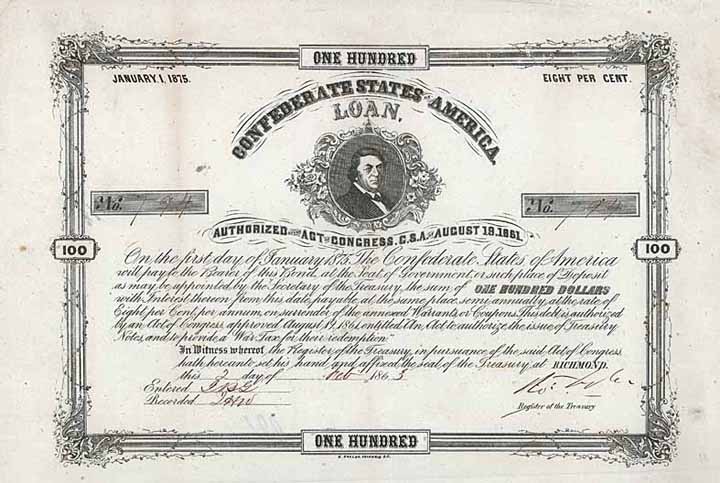 ONE HUNDRED
JANUARY 1, 1875.
EIGHT PER CENT.
CONFEDERATE STATES OF AMERICA
LOAN.
No. 794
No. 794
AUTHORIZED BY ACT OF CONGRESS, C.S.A. OF AUGUST 19, 1861.
100
100
On the first day of January 1875, The Confederate States of America
will pay to the Bearer of this Bond, at the Seat of Government, or such place of Deposit
as may be appointed by the Secretary of the Treasury, the sum of ONE HUNDRED DOLLARS
with Interest thereon from this date, payable at the same place, semi-annually, at the rate of
Eight per Cent. per annum, on surrender of the annexed Warrants, or Coupons. This debt is authorized
by an Act of Congress approved August 19, 1861, entitled "An Act to authorize the issue of Treasury
Notes, and to provide a War Tax for their redemption."
In Witness whereof, the Register of the Treasury, in pursuance of the said Act of Congress
hath hereunto set his hand and affixed the seal of the Treasury, at RICHMOND.
this 2 day of Feb 1863
Entered
Recorded
Register of the Treasury
ONE HUNDRED